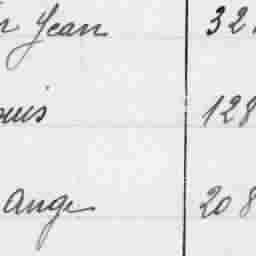 Jean 32
uis 128
Ange 208